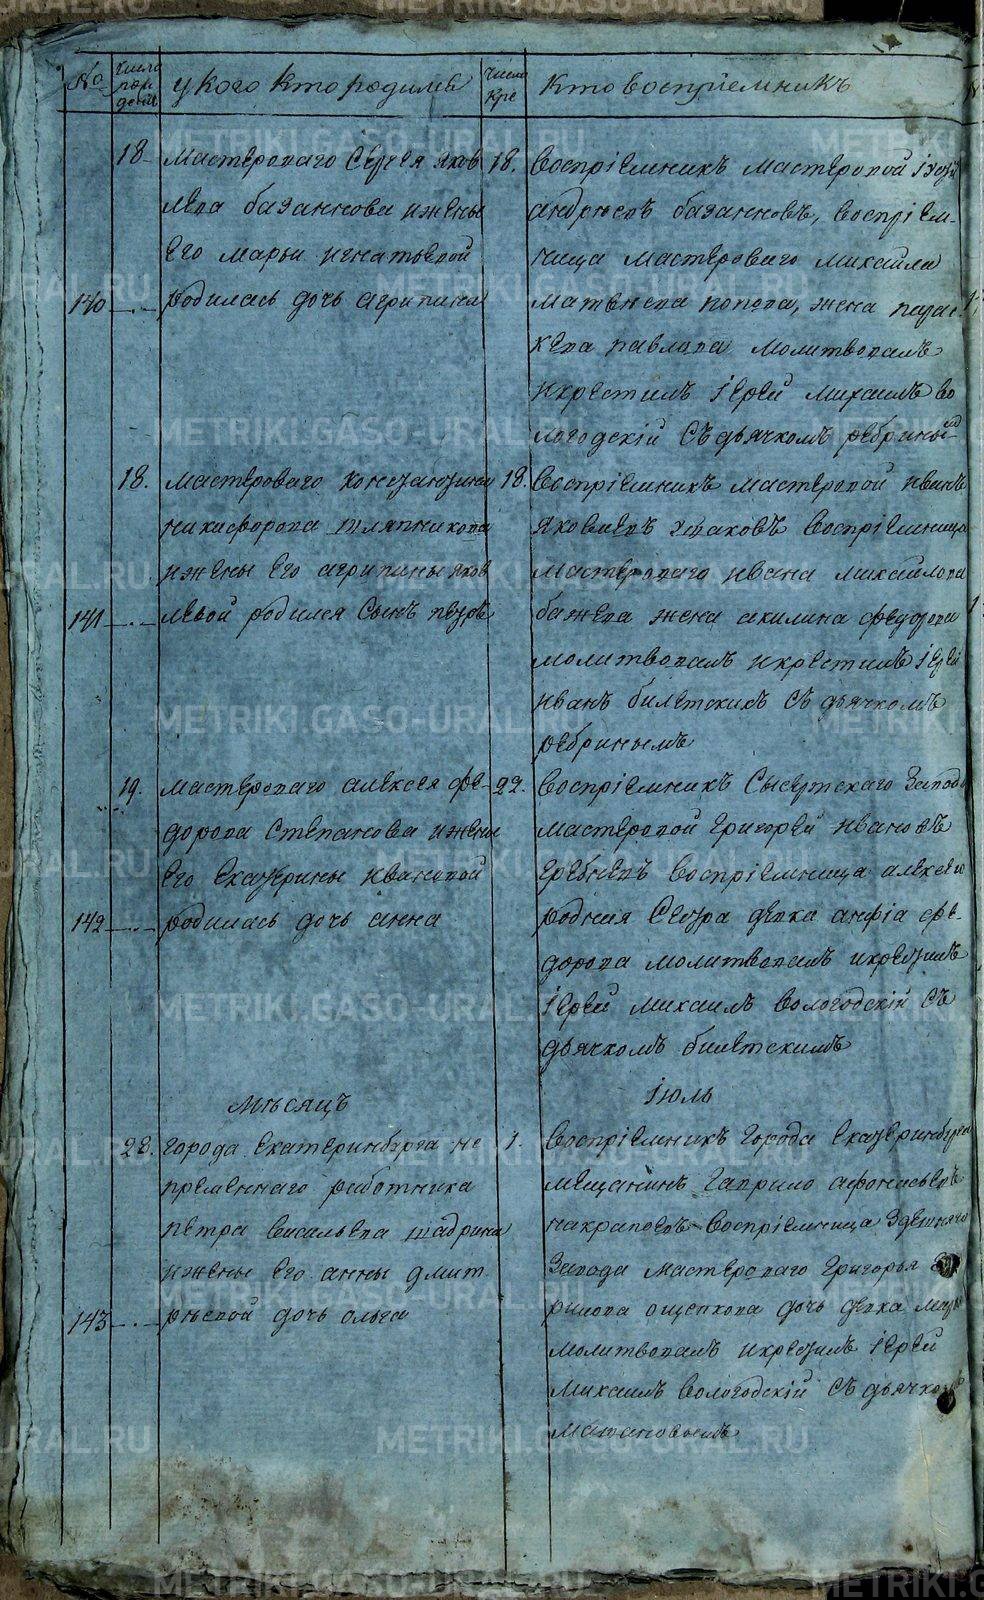 № числа рождения у кого кто родился число кре кто восприемникъ
18. мастероваго Сергея яков
лева базаннова и жены
Его марьи игнатьевой
140 родилась дочь агрипина
18. восприемникъ мастеровой
андреевъ базанновъ, восприем-
ница мастероваго михайла
матвеева попова, жена
павлова молитвовалъ
и крестилъ іерей михаилъ во
логодскій съ дьячкомъ
18. мастероваго константина
никифорова шляпникова
и жены Его агрипины яков
141 левой родился сынъ петръ
18. восприемникъ мастеровой иванъ
яковлевъ ушаковъ восприемница
мастероваго ивана михайлова
бажева жена акилина федорова
молитвовалъ и крестилъ іерей
иванъ билетскихъ съ дьячкомъ
ребринымъ
19. мастероваго алексея фе-
дорова степанова и жены
Его Екатерины ивановой
142 родилась дочь анна
22. восприемникъ Сысертскаго завода
мастеровой григорей ивановъ
гребневъ восприемница алексею
родная сестра девка анфиа фе-
дорова молитвовалъ и крестилъ
іерей михаилъ вологодскій съ
дьячкомъ билетскимъ
месяцъ іюль
28. города Екатеринбурга не
пременнаго работника
петра васильева шадрина
и жены Его анны дмит
143 ріевой дочь ольга
1. восприемникъ города Екатеринбурга
мещанинъ гаврило афонасьевъ
восприемница здешняго
завода мастероваго григорья
ощепкова дочь девка
молитвовалъ и крестилъ іерей
михаилъ вологодскій съ дьячкомъ
METRIKI.GASO-URAL.RU